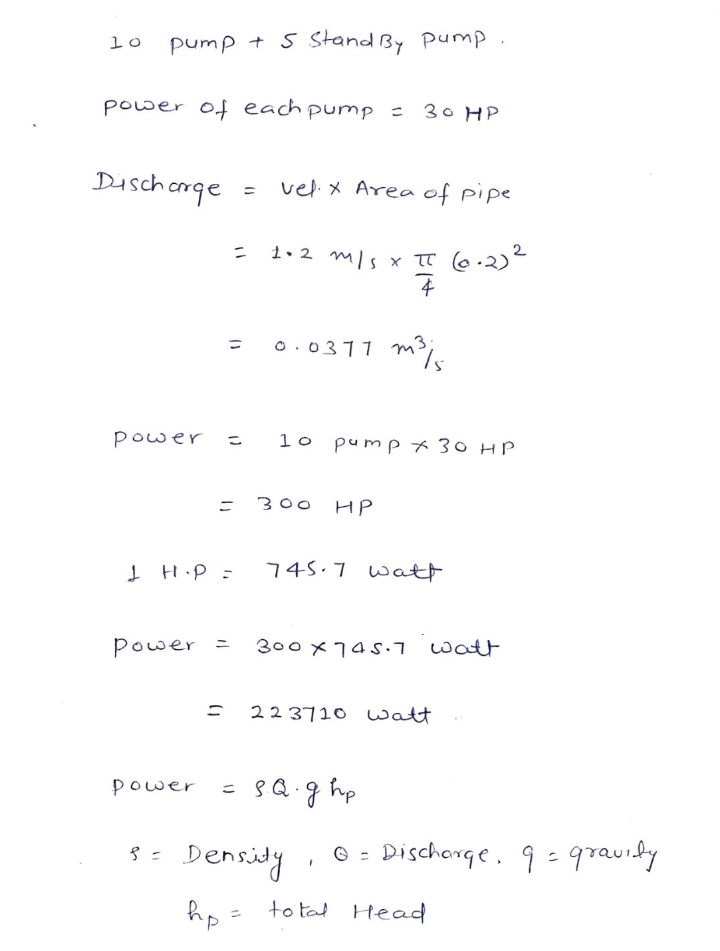 10 pump + 5 Stand By pump.
power of each pump = 30 HP
Discharge = vel. x Area of pipe
= 1.2 m/s x π/4 (0.2)²
= 0.0377 m³/s
power = 10 pump x 30 HP
= 300 HP
1 H.P = 745.7 watt
power = 300 x 745.7 watt
= 223710 watt
power = ρQ.g hp
ρ = Density, Q = Discharge, g = gravity
hp = total Head